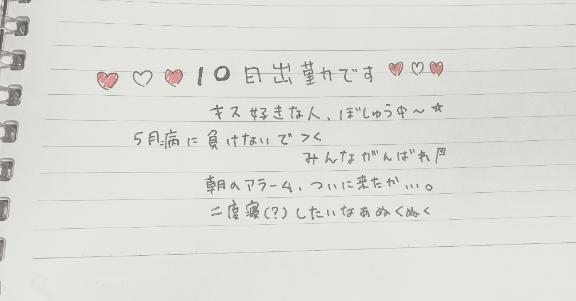 ♥♡♥10日出勤です♥♡♥
キス好きな人、ぼしゅう中～☆
5月病に負けないで
みんながんばれ
朝のアラーム、ついに来たか…。
二度寝(?)したいなあぬくぬく